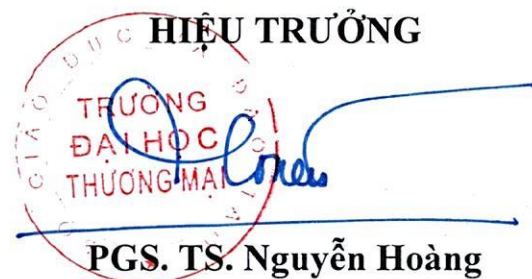 HIỆU TRƯỞNG
GIÁO DỤC
TRƯỜNG
ĐẠI HỌC
THƯƠNG MẠI
PGS. TS. Nguyễn Hoàng